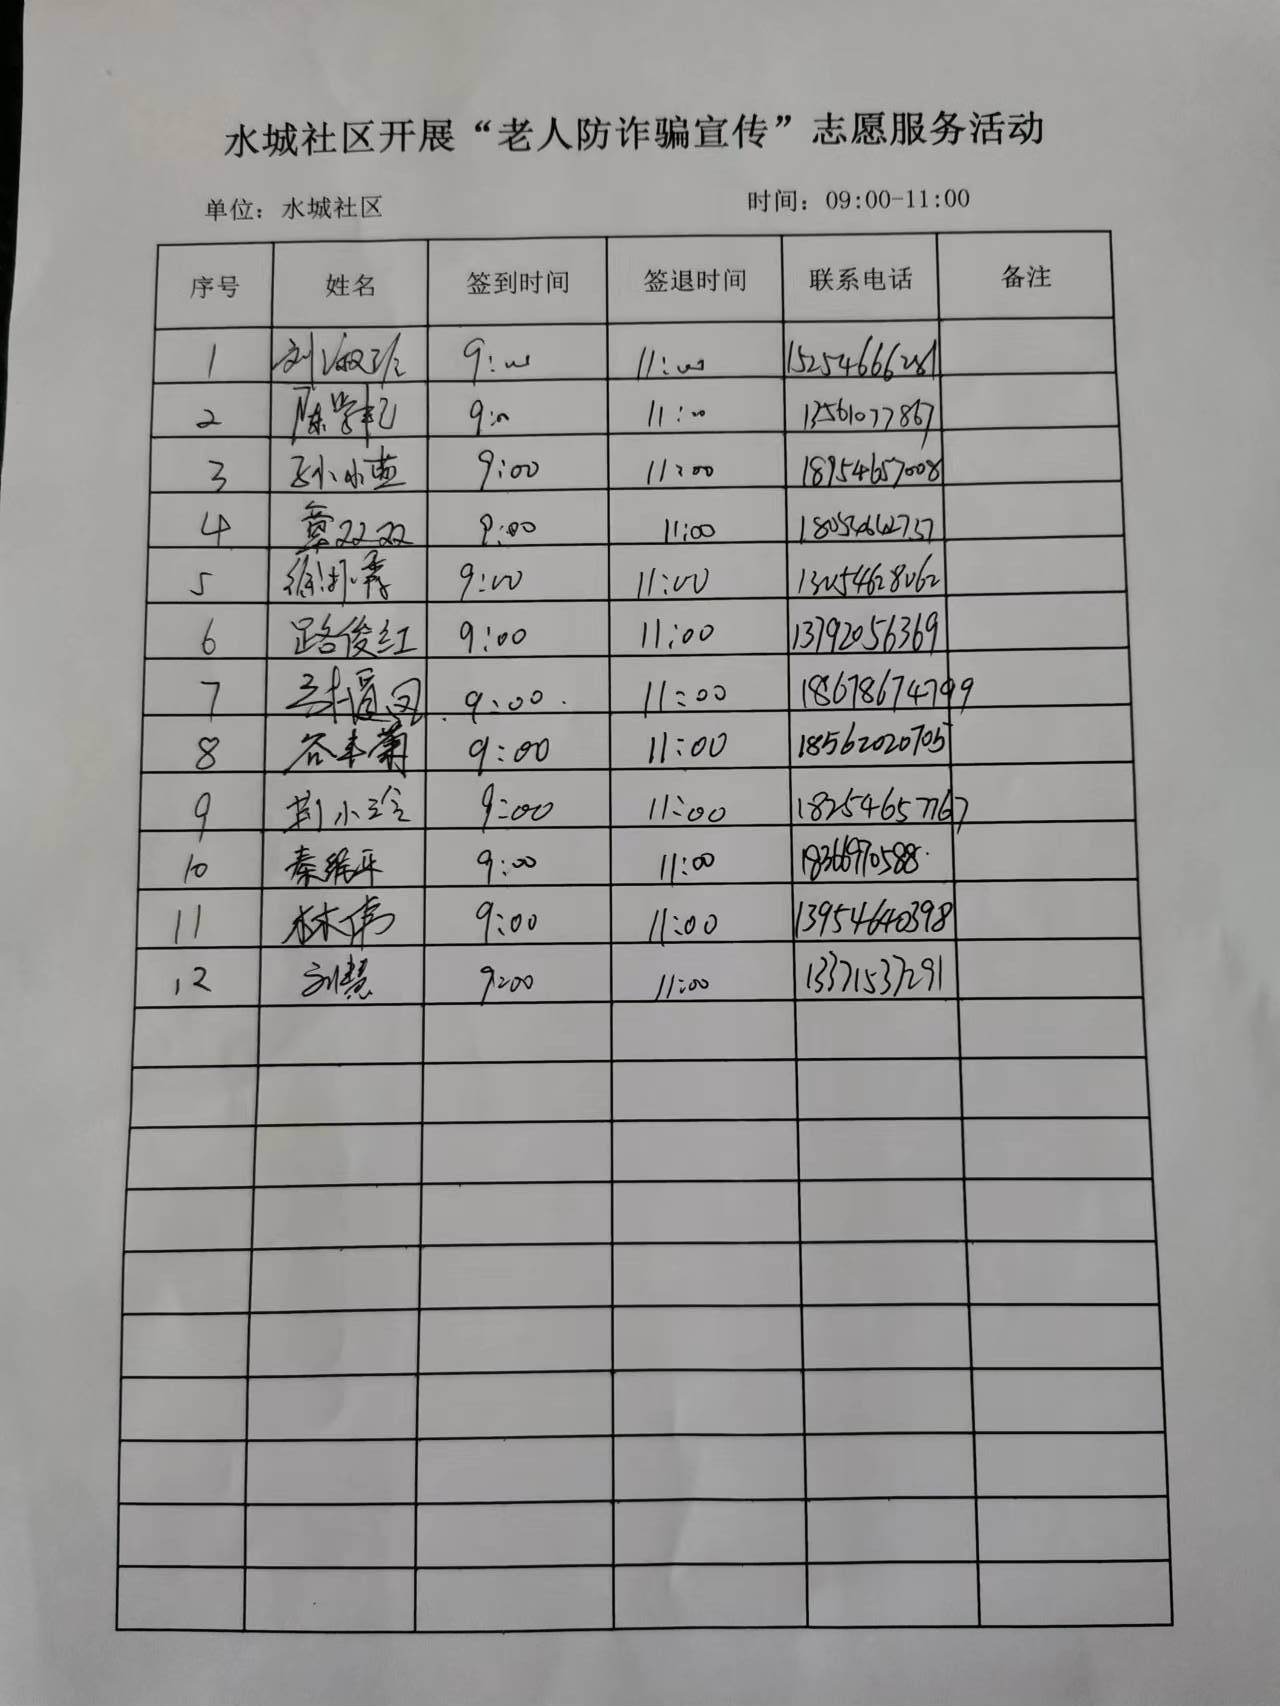 水城社区开展“老人防诈骗宣传”志愿服务活动
单位：水城社区 时间：09:00-11:00
序号 姓名 签到时间 签退时间 联系电话 备注
1 刘 9:00 11:00 15254666281
2 陈学 9:00 11:00 13561077867
3 孙小燕 9:00 11:00 18954657008
4 双双 9:00 11:00
5 徐 9:00 11:00 13054628062
6 路俊红 9:00 11:00 13792056369
7 9:00 11:00 18678674799
8 谷 菊 9:00 11:00 18562020705
9 荆小玲 9:00 11:00 18254657767
10 秦维平 9:00 11:00 18366970588
11 林伟 9:00 11:00 13954640398
12 刘慧 9:00 11:00 13371537291